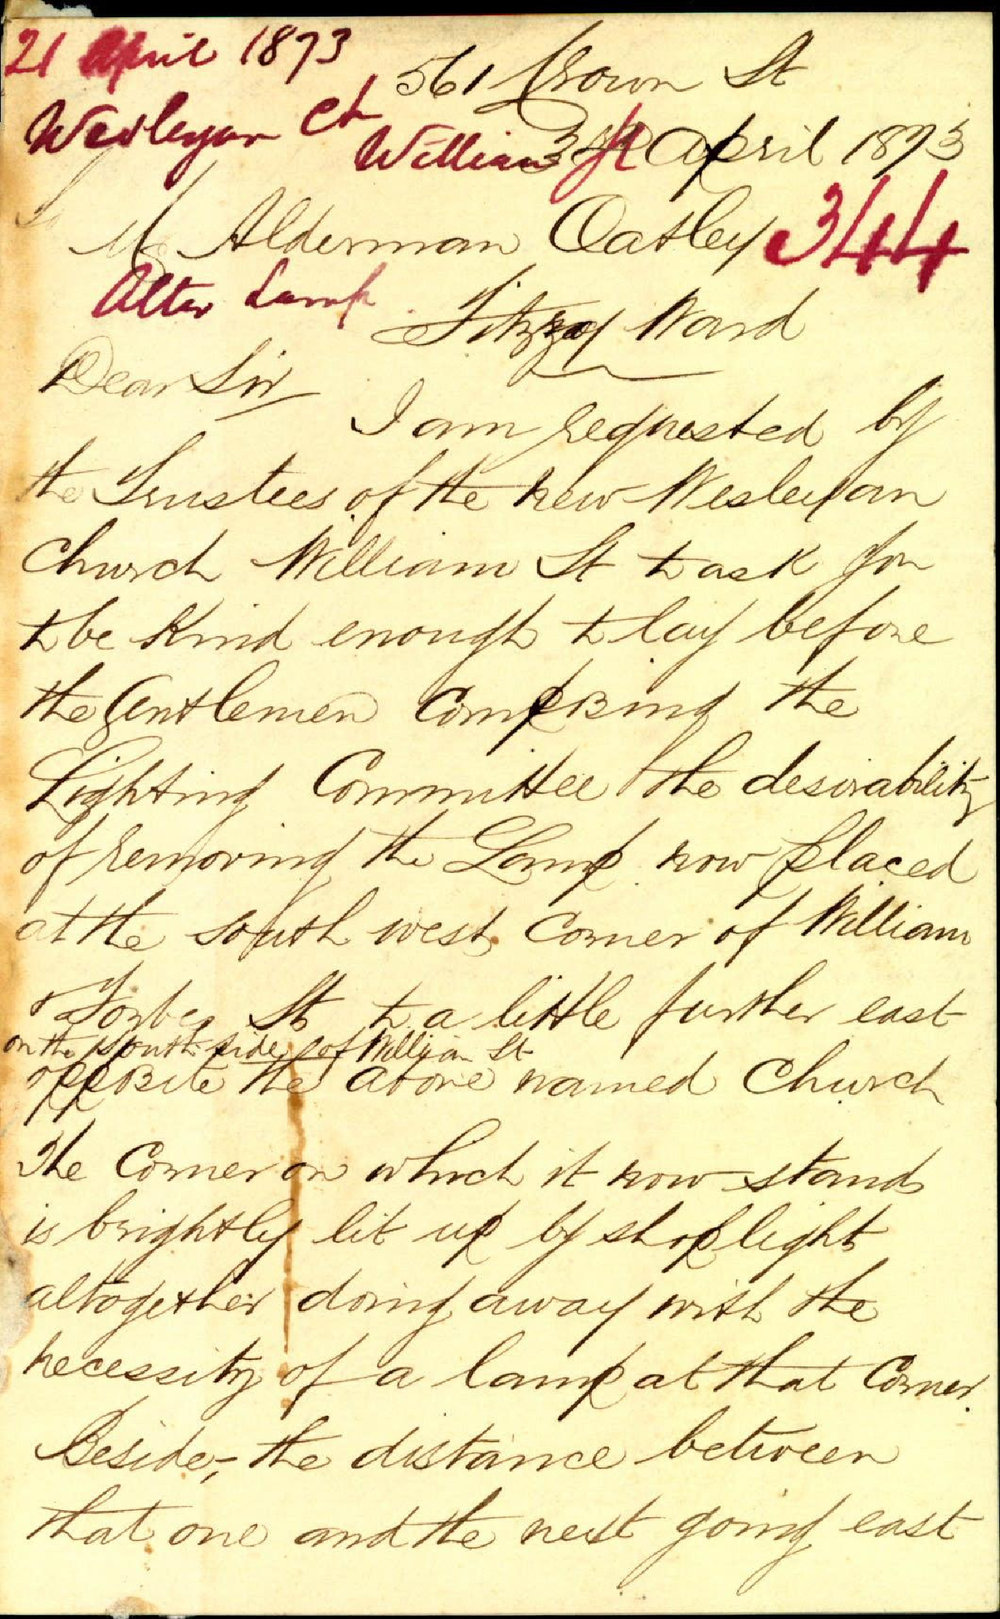 21 April 1873
561 Crown St
Wesleyan Ch
William St
April 1873
344
Mr Alderman Oatley
Alter Lamp
Fitzroy Ward
Dear Sir
I am requested by
the Trustees of the new Wesleyan
Church William St to ask you
to be Kind enough to lay before
the Gentlemen Comprising the
Lighting Committee the desirability
of removing the Lamp now placed
at the south west corner of William
& Forbes St to a little further east
on the south side of William St
opposite the above named Church
The Corner on which it now stands
is brightly lit up by shop lights
altogether doing away with the
necessity of a lamp at that Corner.
Besides, the distance between
that one and the next going east